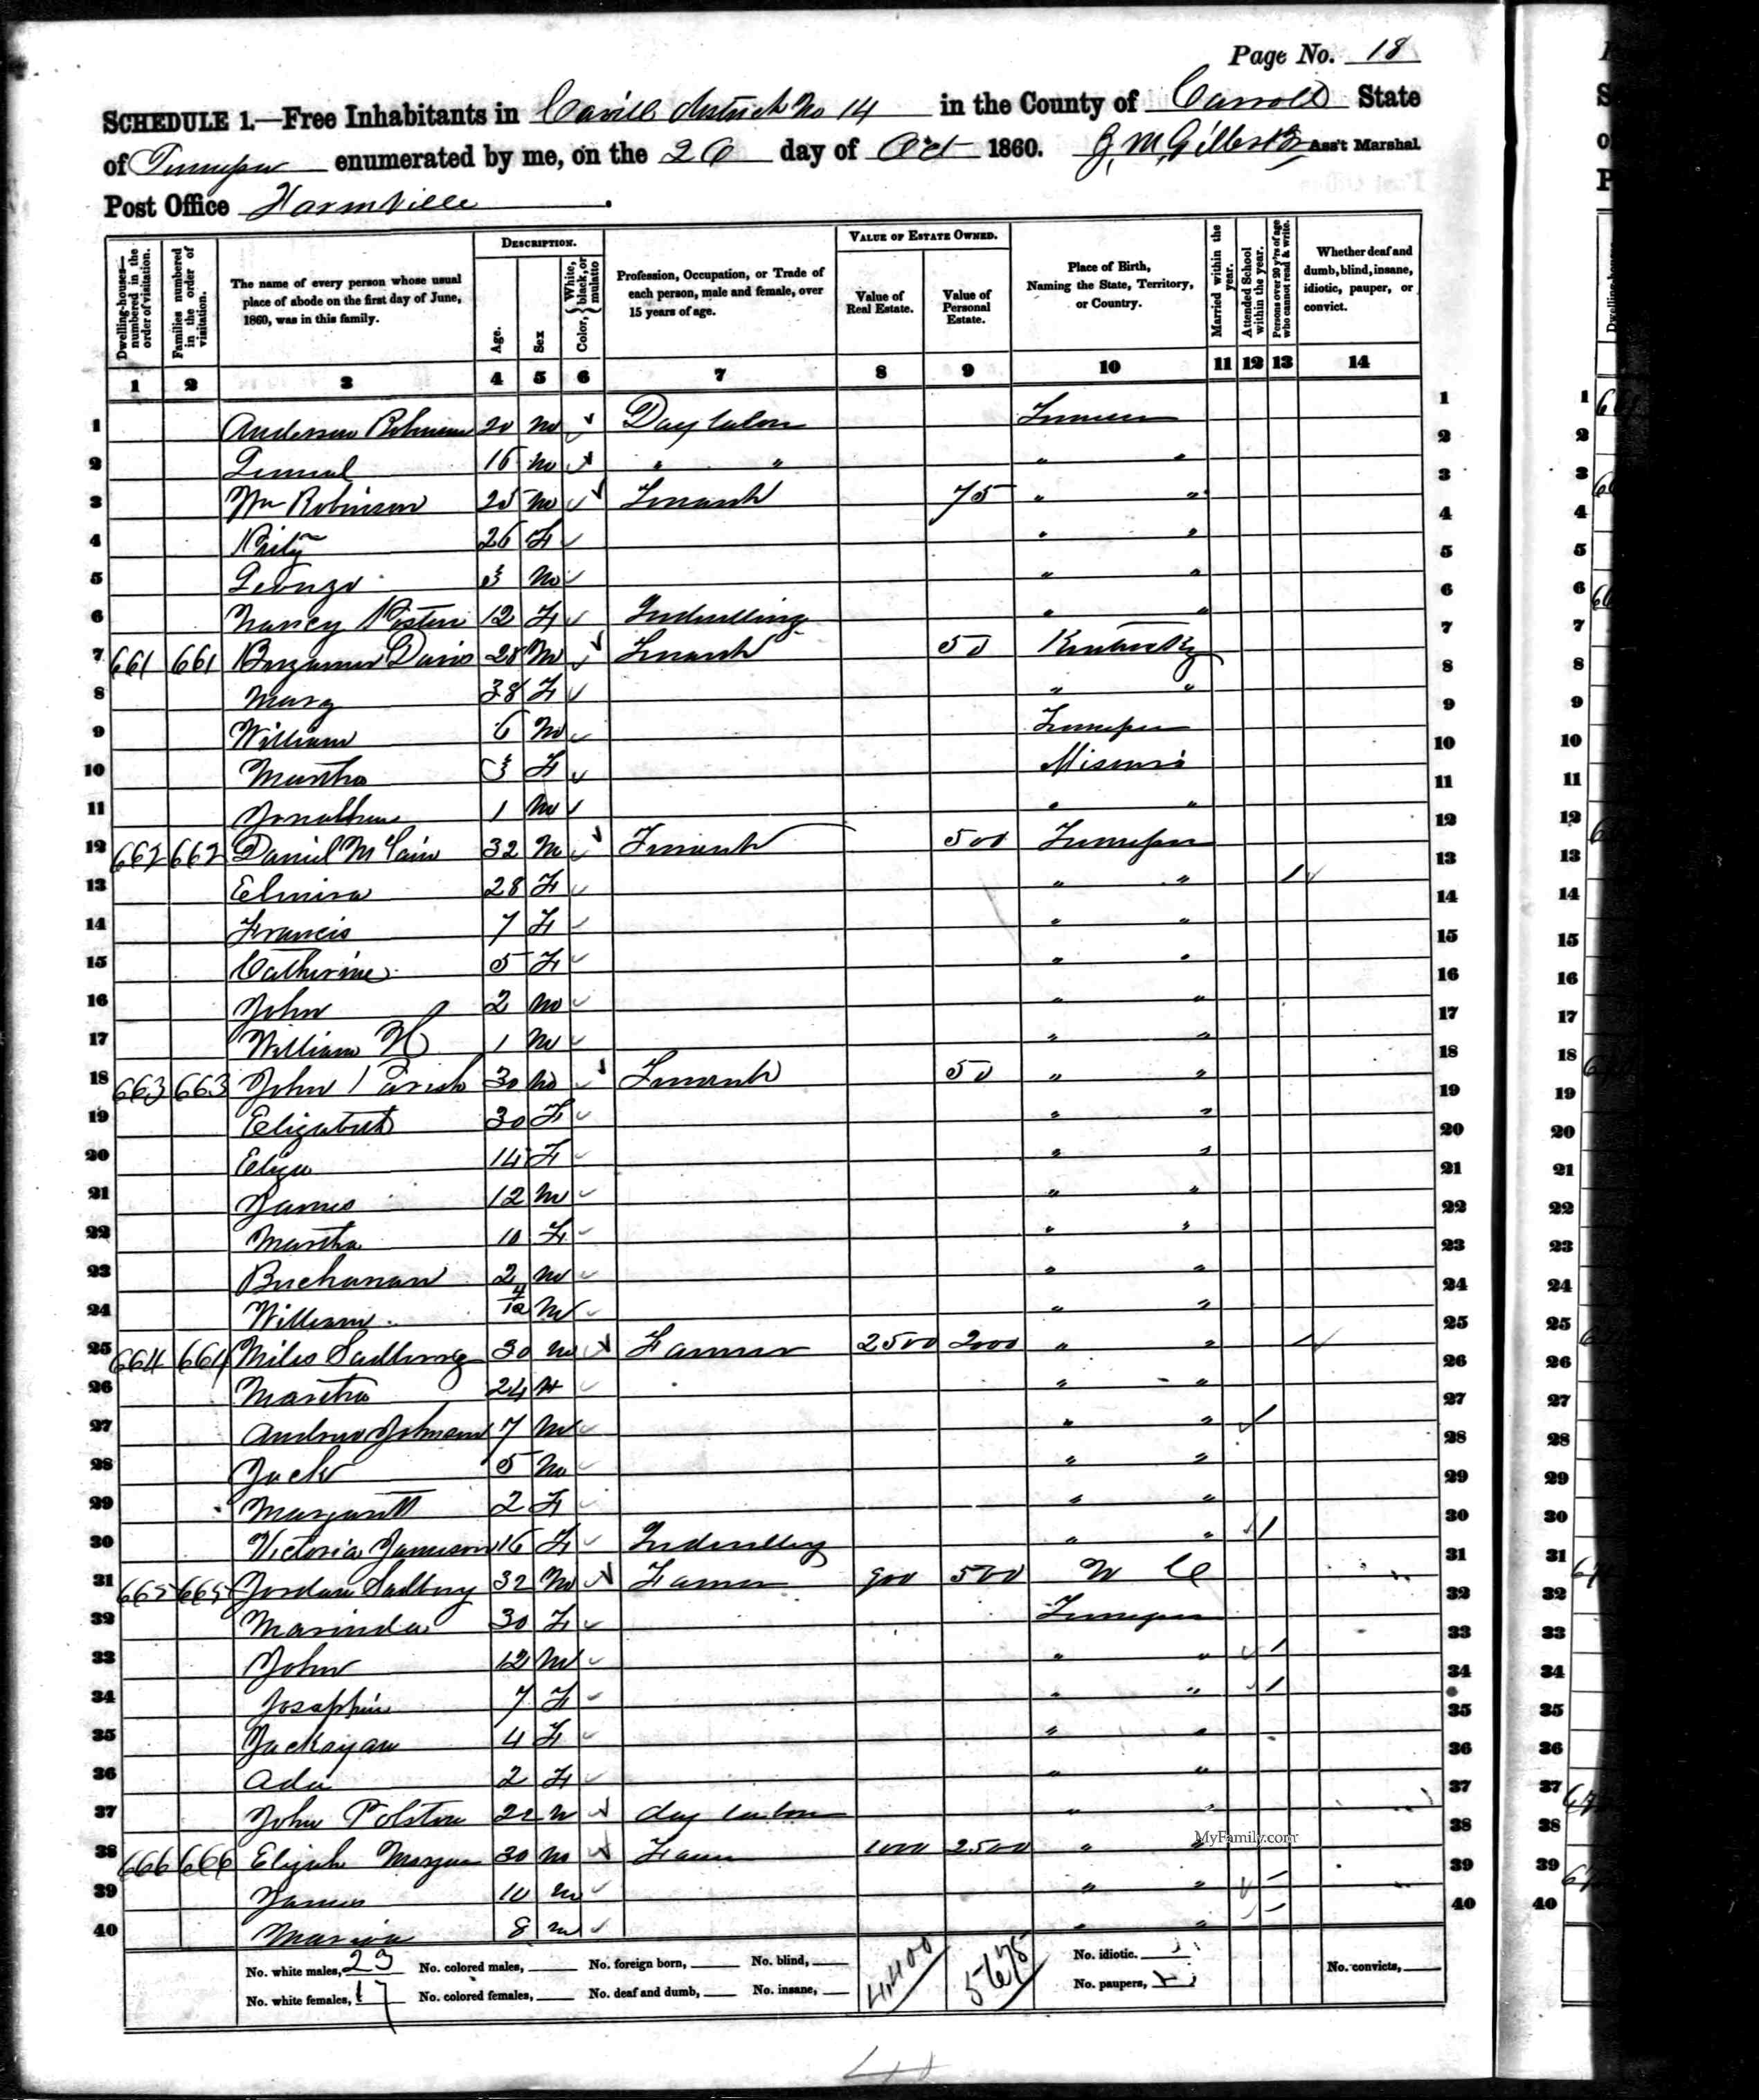 Page No. 18
SCHEDULE 1.—Free Inhabitants in Civill district No 14 in the County of Carroll State
of Tennessee enumerated by me, on the 26 day of Oct 1860. J. M. Gilbert Ass't Marshal
Post Office
Dwelling-houses—numbered in the order of visitation.
Families numbered in the order of visitation.
The name of every person whose usual place of abode on the first day of June, 1860, was in this family.
DESCRIPTION.
Age.
Sex
Color, White, black, or mulatto
Profession, Occupation, or Trade of each person, male and female, over 15 years of age.
VALUE OF ESTATE OWNED.
Value of Real Estate.
Value of Personal Estate.
Place of Birth, Naming the State, Territory, or Country.
Married within the year.
Attended School within the year.
Persons over 20 y'rs of age who cannot read & write.
Whether deaf and dumb, blind, insane, idiotic, pauper, or convict.
1 2 3 4 5 6 7 8 9 10 11 12 13 14
1 Anderson 20 M Day labor 1
2 16 M " " " " 2
3 Wm Robinson 25 M 75 " " 3
4 26 F " " 4
5 M " " 5
6 Nancy 12 F " " 6
7 661 661 Benjamin Davis 28 M 50 Kentucky 7
8 Mary 38 F " " 8
9 William 6 M Tennessee 9
10 Martha F Missouri 10
11 Jonathan 1 M " " 11
12 662 662 Daniel McCain 32 M 500 Tennessee 12
13 Elmira 28 F " " / 13
14 Francis 7 F " " 14
15 Catherine 5 F " " 15
16 John 2 M " " 16
17 William H 1 M " " 17
18 663 663 John Parish 30 M 50 " " 18
19 Elizabeth 30 F " " 19
20 Eliza 14 F " " 20
21 James 12 M " " 21
22 Martha 10 F " " 22
23 Buchanan 2 M " " 23
24 William 4/12 M " " 24
25 664 664 Miles Sadberry 30 M Farmer 2500 2000 " " / 25
26 Martha 24 " " 26
27 Andrew Johnson 7 M " " / 27
28 Jack 5 M " " 28
29 Margarett 2 F " " 29
30 Victoria Jameson 16 F " " / 30
31 665 665 Jordan Sadbery 32 M Farmer 900 500 N C 31
32 Marinda 30 F Tennessee 32
33 John 12 M " " / 33
34 Josaphine 7 F " " / 34
35 Jackayan 4 F " " 35
36 Ada 2 F " " 36
37 John Polston 22 M day labor " " 37
38 666 666 Elijah Morgan 30 M Farmer 1000 2500 " " 38
39 James 10 M " " / 39
40 8 M " " / 40
No. white males, 23 No. colored males, No. foreign born, No. blind, 4400 5675 No. idiotic. No. convicts,
No. white females, 17 No. colored females, No. deaf and dumb, No. insane, No. paupers,
MyFamily.com